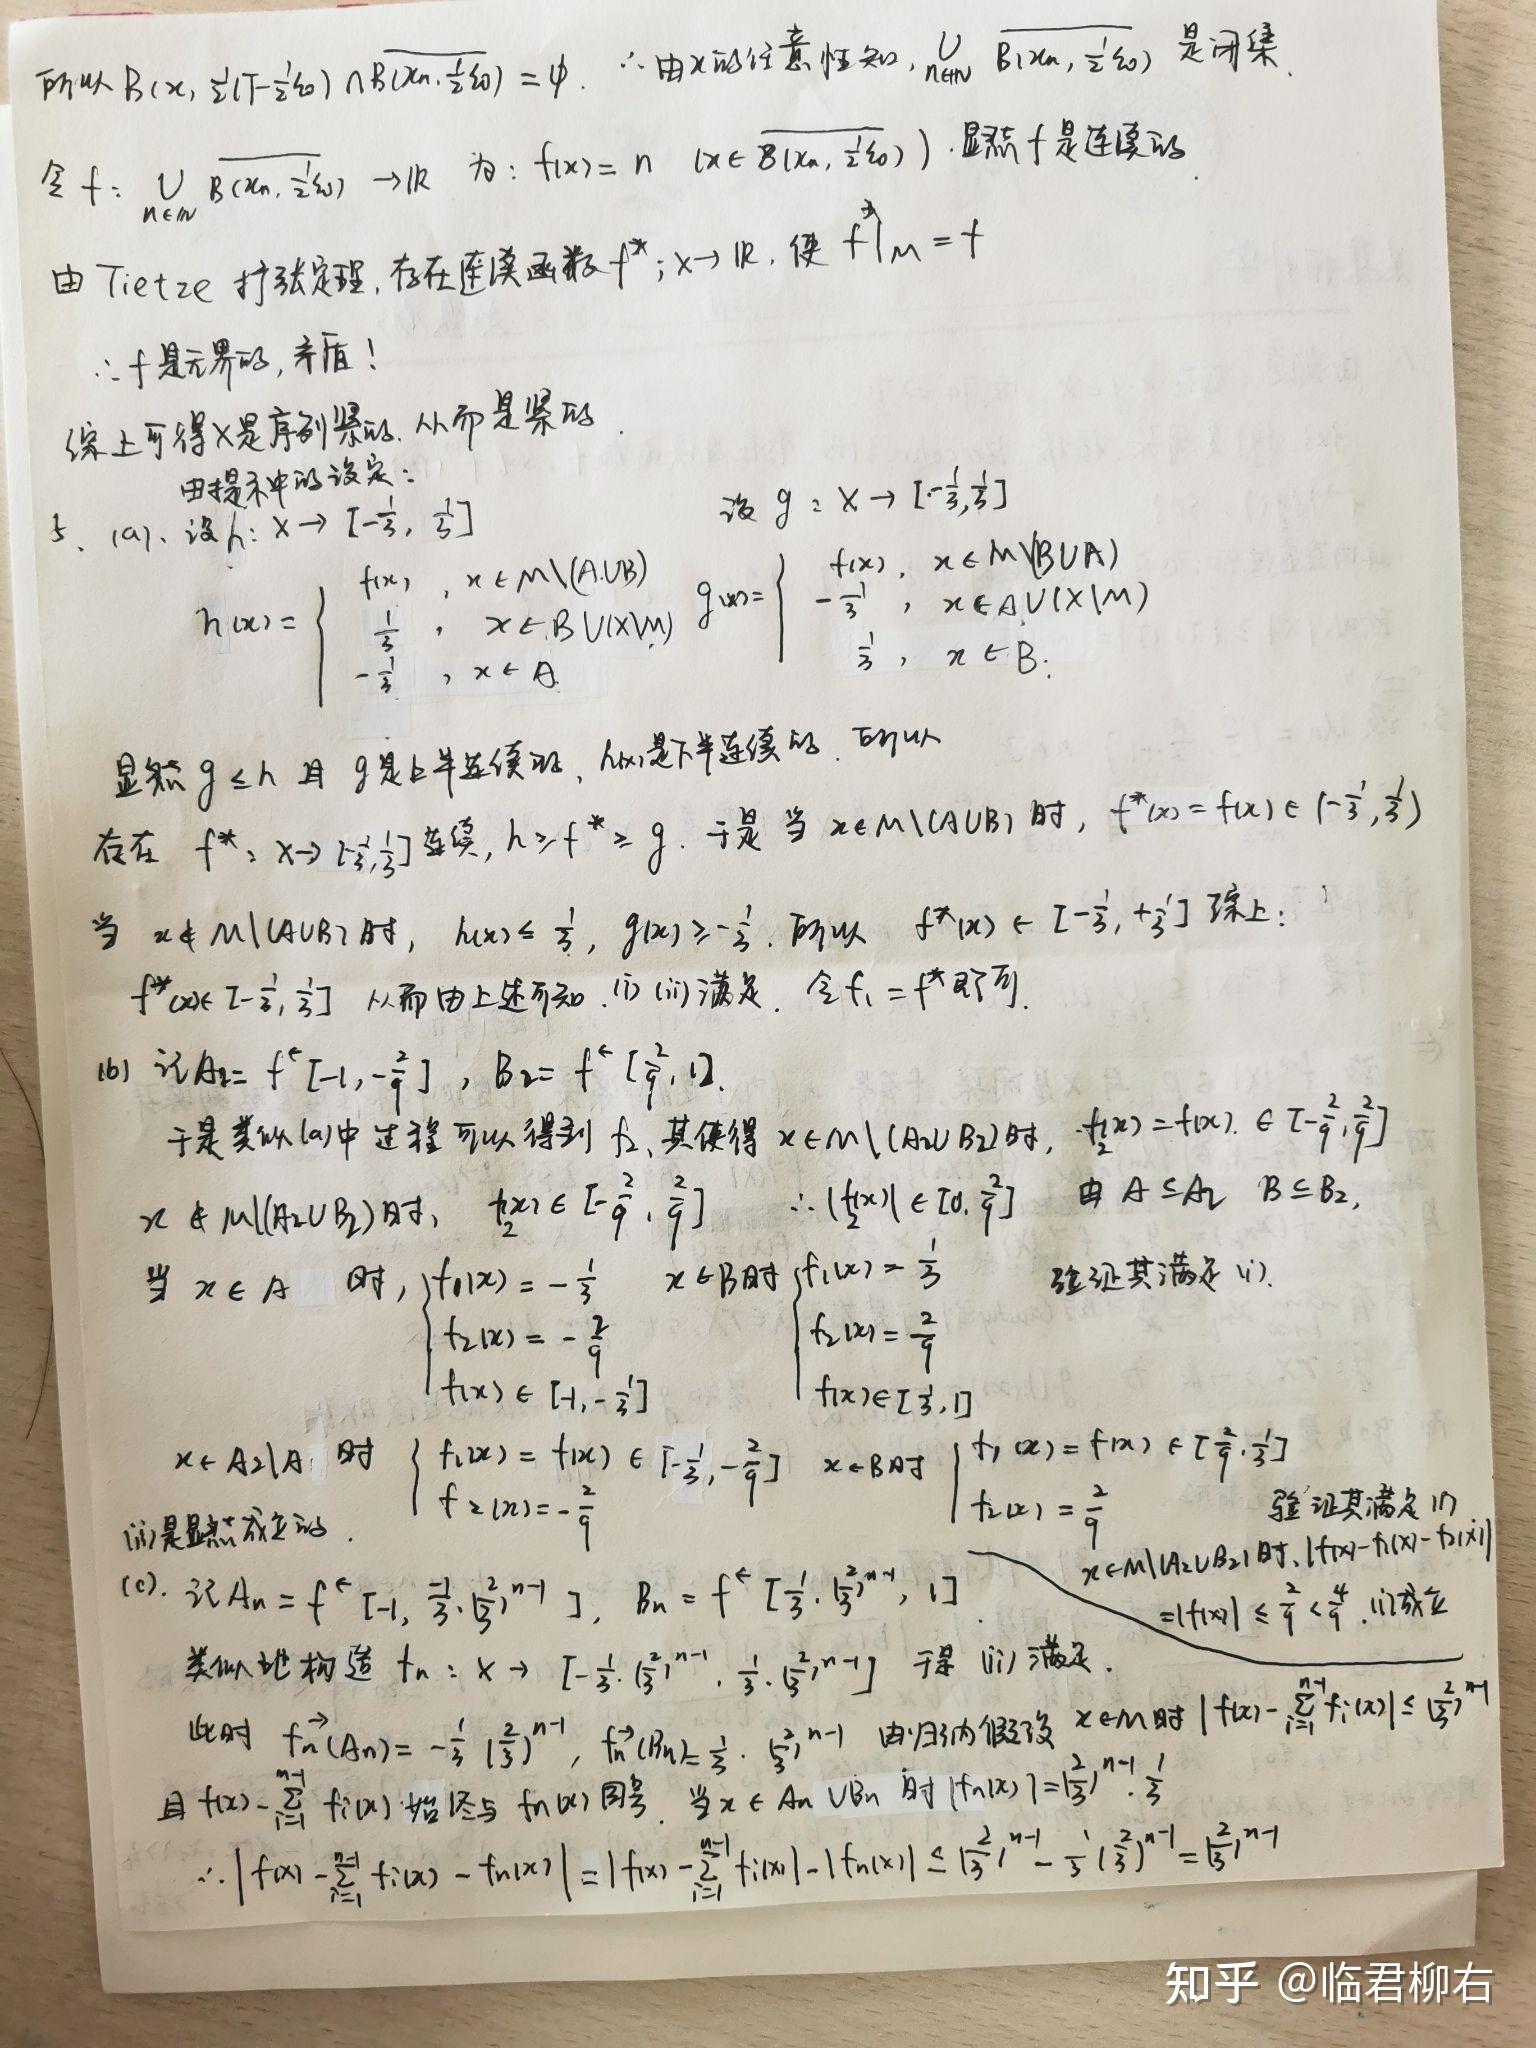 所以 B(x, ½(r-½ε₀)) ∩ \overline{B(xₙ, ½ε₀)} = ψ. ∴ 由x的任意性知, ∪_{n∈ℕ} \overline{B(xₙ, ½ε₀)} 是闭集.
令 f: ∪_{n∈ℕ} \overline{B(xₙ, ½ε₀)} → ℝ 为: f(x) = n (x∈\overline{B(xₙ, ½ε₀)}). 显然 f 是连续的
由 Tietze 扩张定理, 存在连续函数 f*: X→ℝ, 使 f*|_M = f
∴ f 是无界的, 矛盾!
综上可得X是序列紧的, 从而是紧的.
由提示中的设定:
5. (a). 设 h: X → [-1/3, 1/3] 设 g: X → [-1/3, 1/3]
h(x) = { f(x), x∈M\(A∪B) g(x) = { f(x), x∈M\(B∪A)
1/3, x∈B∪(X\M) -1/3, x∈A∪(X\M)
-1/3, x∈A. 1/3, x∈B.
显然 g≤h 且 g是上半连续的, h(x)是下半连续的. 所以
存在 f*: X→[-1/3, 1/3] 连续, h≥f*≥g. 于是 当 x∈M\(A∪B) 时, f*(x) = f(x) ∈ (-1/3, 1/3)
当 x∉M\(A∪B) 时, h(x) ≤ 1/3, g(x) ≥ -1/3. 所以 f*(x) ∈ [-1/3, +1/3] 综上:
f*(x)∈[-1/3, 1/3] 从而由上述可知 (i) (ii) 满足. 令 f₁ = f* 即可.
(b) 记 A₂ = f^←[-1, -2/9], B₂ = f^←[2/9, 1].
于是类似(a)中过程可以得到 f₂, 其使得 x∈M\(A₂∪B₂)时, f₂(x) = f(x). ∈ [-2/9, 2/9]
x∉M\(A₂∪B₂)时, f₂(x) ∈ [-2/9, 2/9] ∴ |f₂(x)| ∈ [0, 2/9] 由 A⊆A₂ B⊆B₂,
当 x∈A 时, { f₁(x) = -1/3 x∈B时 { f₁(x) = 1/3 验证其满足(i).
f₂(x) = -2/9 f₂(x) = 2/9
f(x) ∈ [-1, -1/3] f(x) ∈ [1/3, 1]
x∈A₂\A 时 { f₁(x) = f(x) ∈ [-1/3, -2/9] x∈B时 { f₁(x) = f(x) ∈ [2/9, 1/3]
f₂(x) = -2/9 f₂(x) = 2/9 验证其满足(i)
(ii)是显然成立的. x∈M\(A₂∪B₂)时, |f(x)-f₁(x)-f₂(x)|
=|f(x)| ≤ 2/9 < 4/9. (i)成立
(c). 记 Aₙ = f^←[-1, -1/3·(2/3)^{n-1}], Bₙ = f^←[1/3·(2/3)^{n-1}, 1].
类似地构造 fₙ: X → [-1/3·(2/3)^{n-1}, 1/3·(2/3)^{n-1}] 于是 (ii) 满足.
此时 fₙ^→(Aₙ) = -1/3 (2/3)^{n-1}, fₙ^→(Bₙ) = 1/3·(2/3)^{n-1} 由归纳假设 x∈M时 |f(x) - Σ_{i=1}^{n-1} fᵢ(x)| ≤ (2/3)^{n-1}
且 f(x) - Σ_{i=1}^{n-1} fᵢ(x) 始终与 fₙ(x) 同号. 当 x∈Aₙ∪Bₙ 时 |fₙ(x)| = (2/3)^{n-1}·1/3
∴ |f(x) - Σ_{i=1}^{n-1} fᵢ(x) - fₙ(x)| = |f(x) - Σ_{i=1}^{n-1} fᵢ(x)| - |fₙ(x)| ≤ (2/3)^{n-1} - 1/3 (2/3)^{n-1} = (2/3)^{n-1}
知乎 @临君柳右